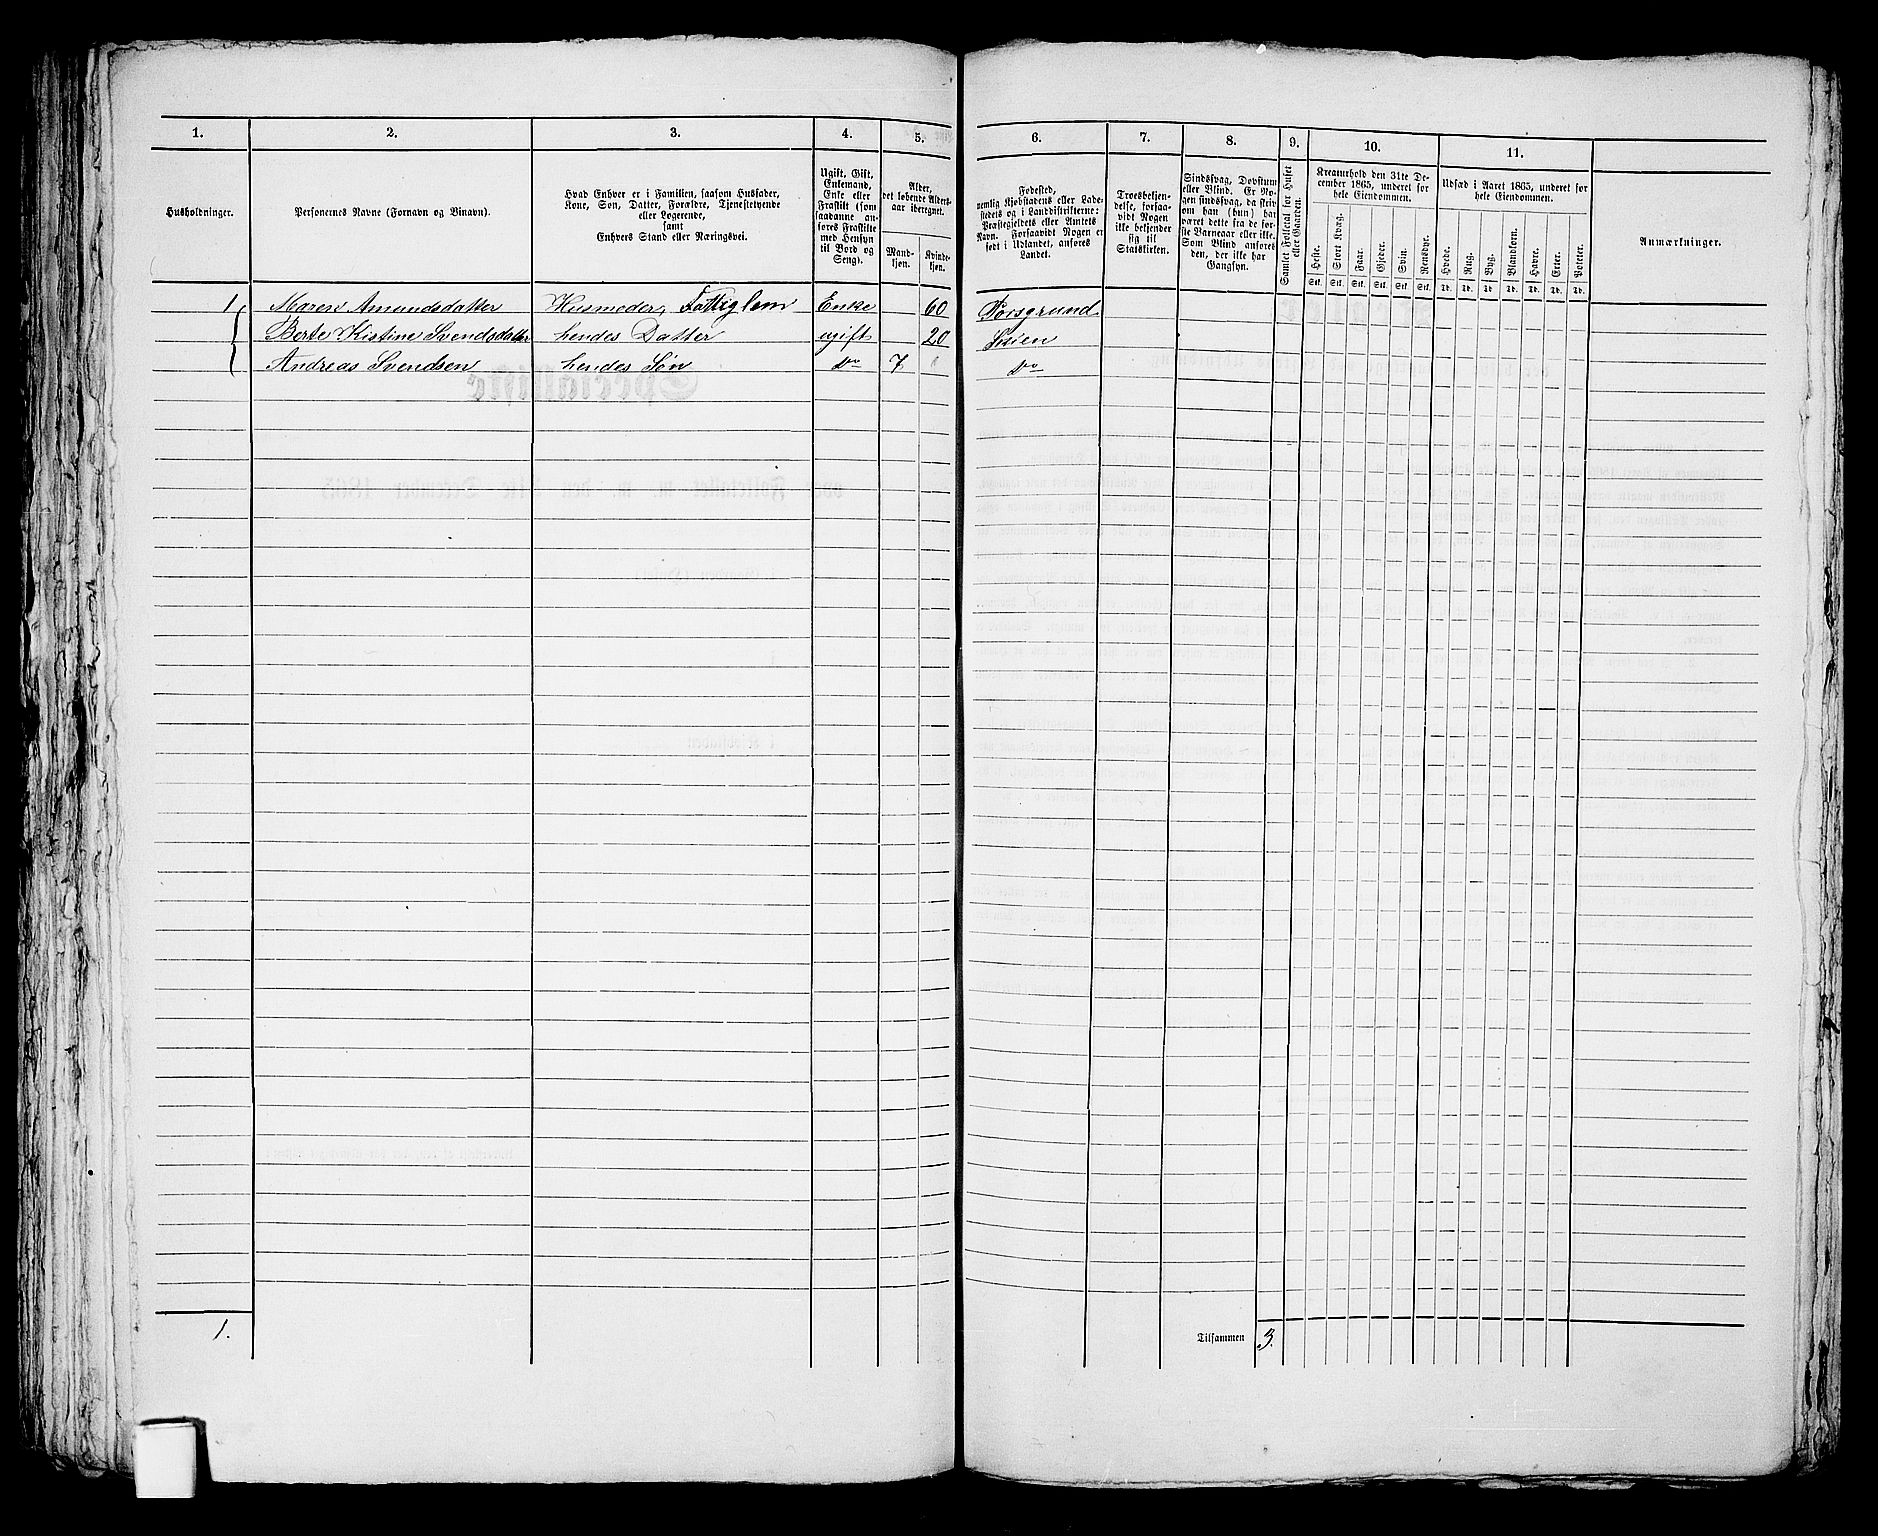 1. 2. 3. 4. 5. 6. 7. 8. 9. 10. 11.
Husholdninger.
Personernes Navne (Fornavn og Vinavn).
Hvad Enhver er i Familien, saasom Husfader,
Kone, Søn, Datter, Forældre, Tjenestetyende
eller Logerende,
samt
Enhvers Stand eller Næringsvei.
Ugift, Gift,
Enkemand,
Enke eller
Fraskilt (som
saadanne an-
føres Fraskilte
med Hensyn
til Bord og
Seng).
Alder,
det løbende Alders-
aar iberegnet.
Mand-
kjøn.
Kvinde-
kjøn.
Fødested,
nemlig Kjøbstadens eller Lade-
stedets og i Landdistrikterne:
Præstegjeldets eller Amtets
Navn. Forsaavidt Nogen er
født i Udlandet, anføres
Landet.
Troesbekjen-
delse, forsaa-
vidt Nogen
ikke bekjender
sig til
Statskirken.
Sindssvag, Døvstum
eller Blind. Er No-
gen sindssvag, da skriv
om han (hun) har
været dette fra de før-
ste Barneaar eller ikke.
Som Blind anføres
den, der ikke har
Gangsyn.
Samlet Folketal for Huset
eller Gaarden.
Kreaturhold den 31te De-
cember 1865, underet for
hele Eiendommen.
Heste. Stort Kvæg. Faar. Gjeder. Svin. Rensdyr.
Stk. Stk. Stk. Stk. Stk. Stk.
Udsæd i Aaret 1865, underet for
hele Eiendommen.
Hvede. Rug. Byg. Blandkorn. Havre. Erter. Poteter.
Td. Td. Td. Td. Td. Td. Td.
Anmærkninger.
1 Maren Amundsdatter Husmoder, Fattiglem Enke 60 Porsgrund
Berte Kistine Svendsdatter hendes Datter ugift 20 Skien
Andreas Svendsen hendes Søn do 7 do
1. Tilsammen 3.